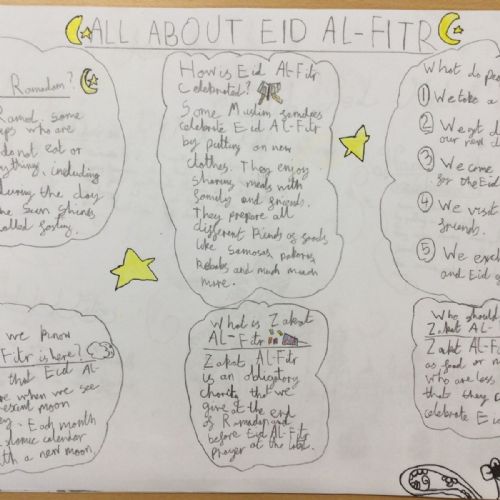 ALL ABOUT EID AL-FITR
Ramadam?
Ramad. some
who are
do not eat or
ything, including
during the day
he sun shines.
alled fasting.
How is Eid Al-Fitr
Celebrated?
Some Muslim
celebrate Eid Al-Fitr
by putting on new
clothes. They enjoy
sharing meals with
family and friends.
They prepare all
different kiends of foods
like samosas, pakoras,
Kebabs and much much
more.
What do peo
① We take a
② We get d
our new
③ We come
for the Eid
④ We visit
friends.
⑤ We exch
and Eid g
we know
Fitr is here?
that Eid Al-
when we see
rescent moon
Each month
islamic calender
th a new moon.
What is Zakat
AL-Fitr
Zakat AL-Fitr
is an obligatory
charity that we
give at the end
of Ramadan and
before Eid AL-Fitr
Prayer at the
Who should
Zakat AL-
Zakt AL-F
as food or m
who are less
that they c
celebrate E